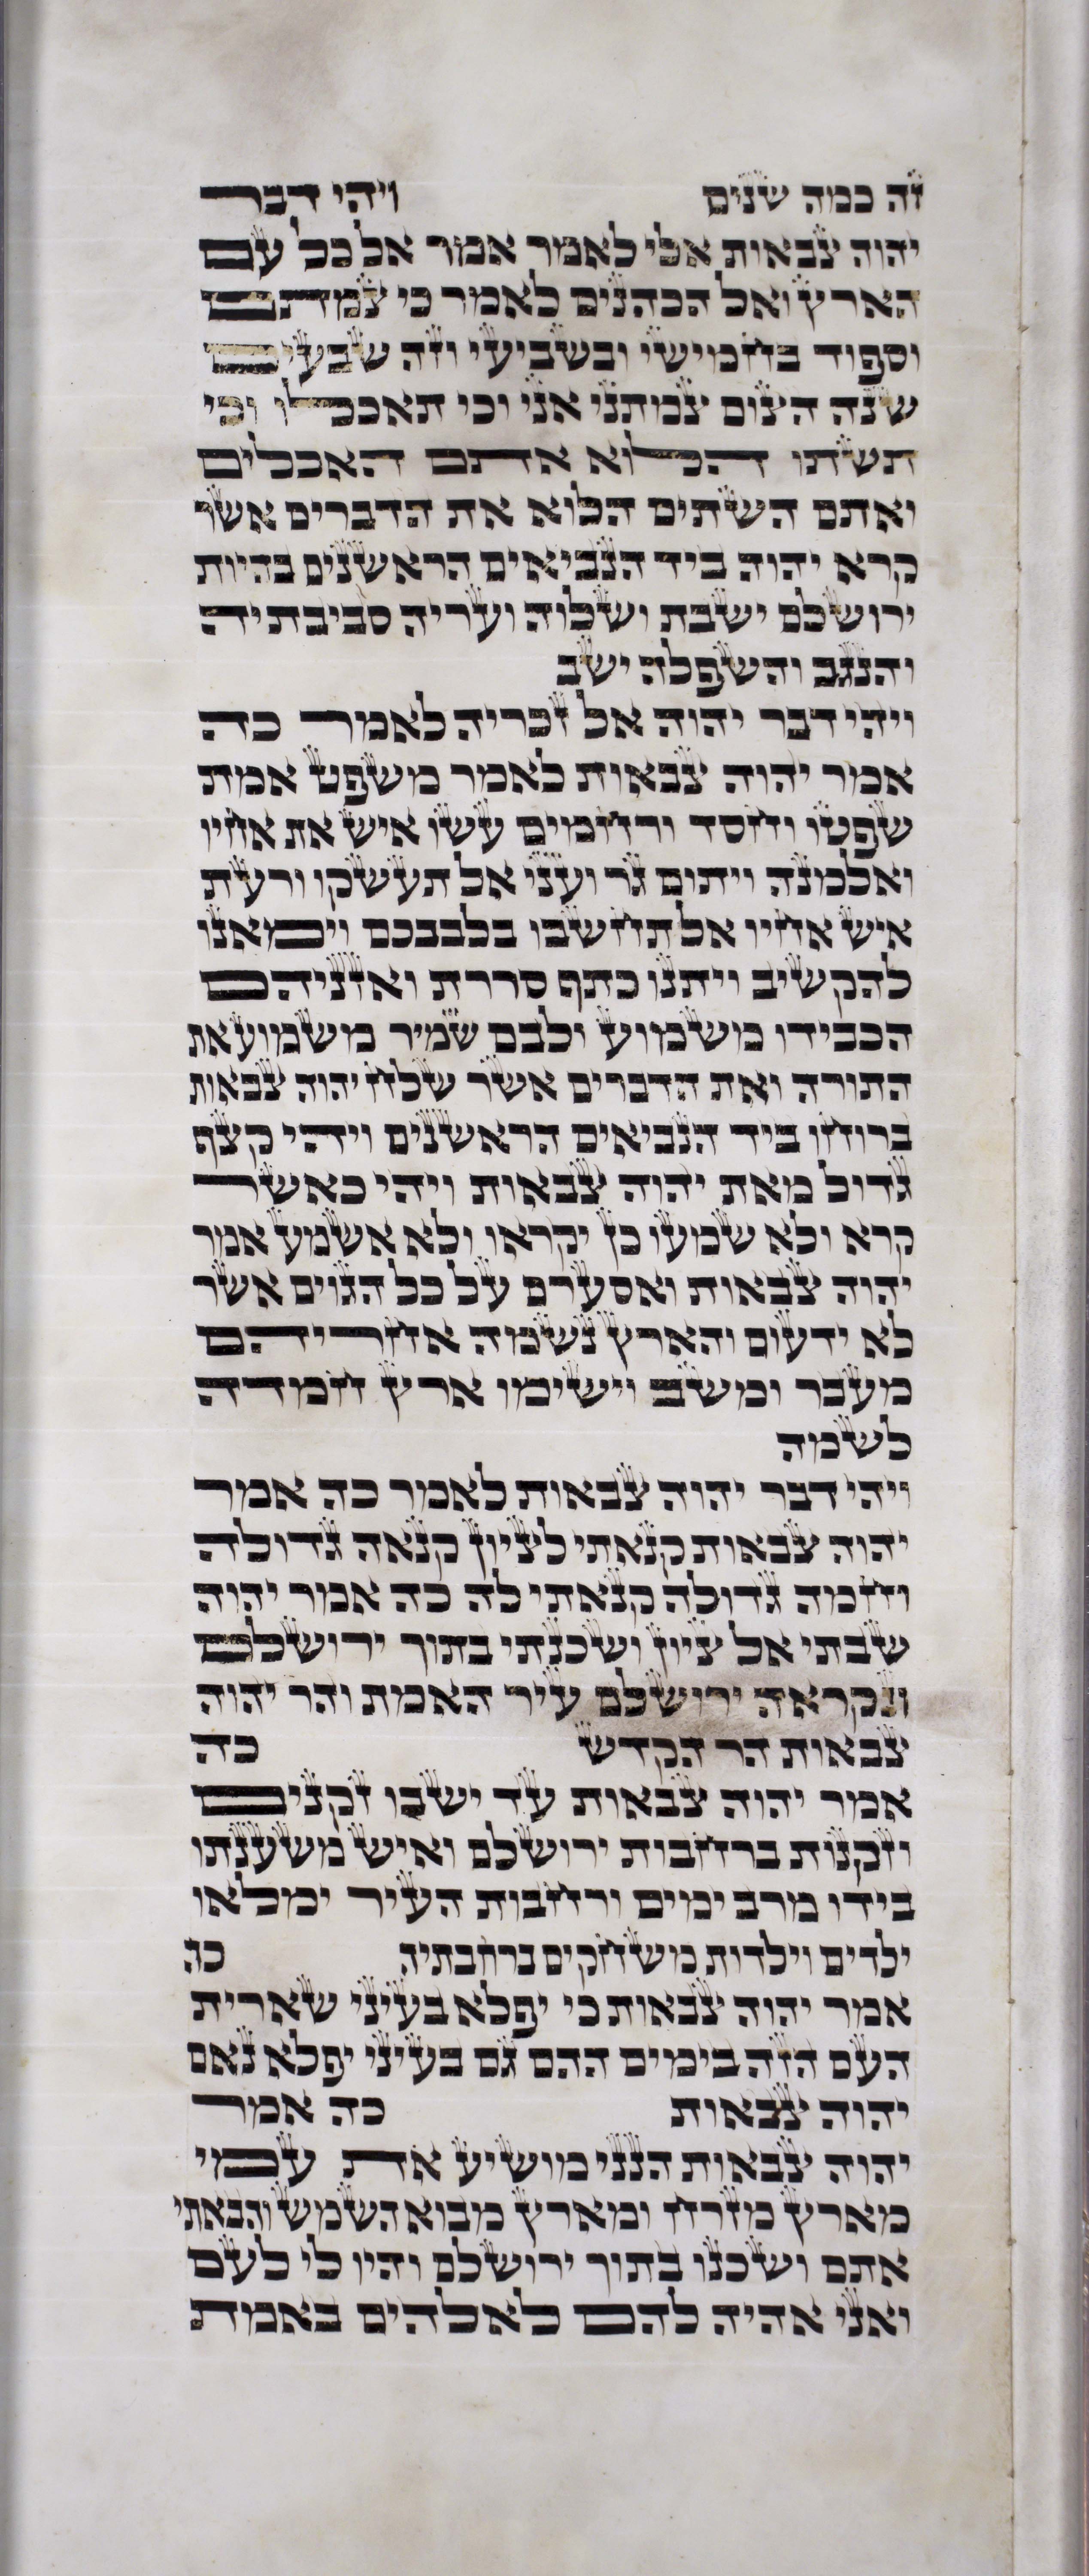 זה כמה שנים ויהי דבר
יהוה צבאות אלי לאמר אמר אל כל עם
הארץ ואל הכהנים לאמר כי צמתם
וספוד בחמישי ובשביעי וזה שבעים
שנה הצום צמתני אני וכי תאכלו וכי
תשתו הלוא אתם האכלים
ואתם השתים הלוא את הדברים אשר
קרא יהוה ביד הנביאים הראשנים בהיות
ירושלם ישבת ושלוה ועריה סביבתיה
והנגב והשפלה ישב
ויהי דבר יהוה אל זכריה לאמר כה
אמר יהוה צבאות לאמר משפט אמת
שפטו וחסד ורחמים עשו איש את אחיו
ואלמנה ויתום גר ועני אל תעשקו ורעת
איש אחיו אל תחשבו בלבבכם וימאנו
להקשיב ויתנו כתף סררת ואזניהם
הכבידו משמוע ולבם שמיר משמוע את
התורה ואת הדברים אשר שלח יהוה צבאות
ברוחו ביד הנביאים הראשנים ויהי קצף
גדול מאת יהוה צבאות ויהי כאשר
קרא ולא שמעו כן יקראו ולא אשמע אמר
יהוה צבאות ואסערם על כל הגוים אשר
לא ידעום והארץ נשמה אחריהם
מעבר ומשב וישימו ארץ חמדה
לשמה
ויהי דבר יהוה צבאות לאמר כה אמר
יהוה צבאות קנאתי לציון קנאה גדולה
וחמה גדולה קנאתי לה כה אמר יהוה
שבתי אל ציון ושכנתי בתוך ירושלם
ונקראה ירושלם עיר האמת והר יהוה
צבאות הר הקדש כה
אמר יהוה צבאות עד ישבו זקנים
וזקנות ברחבות ירושלם ואיש משענתו
בידו מרב ימים ורחבות העיר ימלאו
ילדים וילדות משחקים ברחבתיה כה
אמר יהוה צבאות כי יפלא בעיני שארית
העם הזה בימים ההם גם בעיני יפלא נאם
יהוה צבאות כה אמר
יהוה צבאות הנני מושיע את עמי
מארץ מזרח ומארץ מבוא השמש והבאתי
אתם ושכנו בתוך ירושלם והיו לי לעם
ואני אהיה להם לאלהים באמת